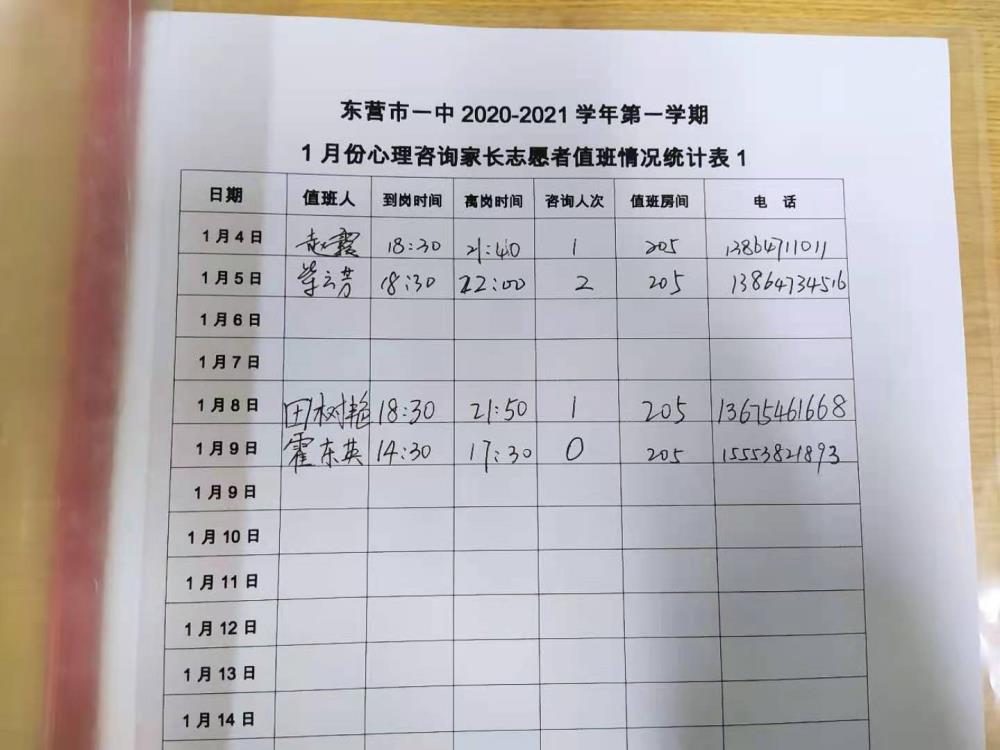 东营市一中 2020-2021 学年第一学期
1 月份心理咨询家长志愿者值班情况统计表 1
日期 值班人 到岗时间 离岗时间 咨询人次 值班房间 电 话
1 月 4 日 赵霞 18:30 21:40 1 205 13864711011
1 月 5 日 云芳 18:30 22:00 2 205 13864734516
1 月 6 日
1 月 7 日
1 月 8 日 田树艳 18:30 21:50 1 205 13675461668
1 月 9 日 霍东英 14:30 17:30 0 205 15553821893
1 月 9 日
1 月 10 日
1 月 11 日
1 月 12 日
1 月 13 日
1 月 14 日